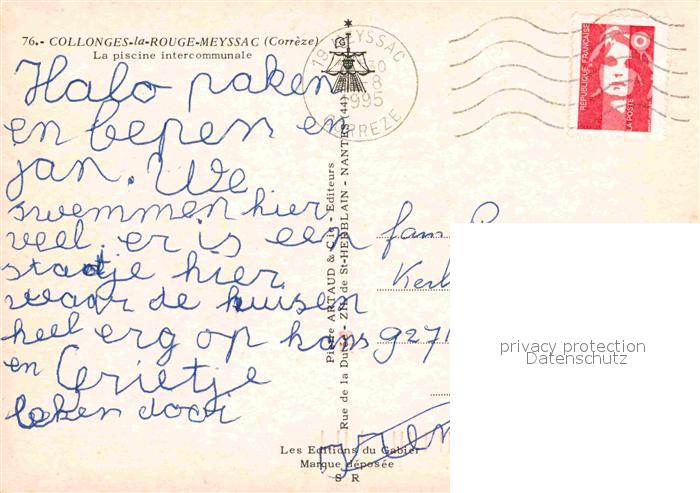 76.- COLLONGES-la-ROUGE-MEYSSAC (Corrèze)
La piscine intercommunale
Halo paken
en bepen en
jan. We
swemmen hier
veel. er is een
stadje hier
waar de huisen
heel erg op hans
en Grietje
leken door
fam
Kerk
9271
19 MEYSSAC
30
8
1995
CORREZE
RÉPUBLIQUE FRANÇAISE
LA POSTE
Pierre ARTAUD & Cie - Editeurs
Rue de la Dutée - ZIL de St-HERBLAIN - NANTES (44)
Les Editions du Gabier
Marque déposée
S R
privacy protection
Datenschutz